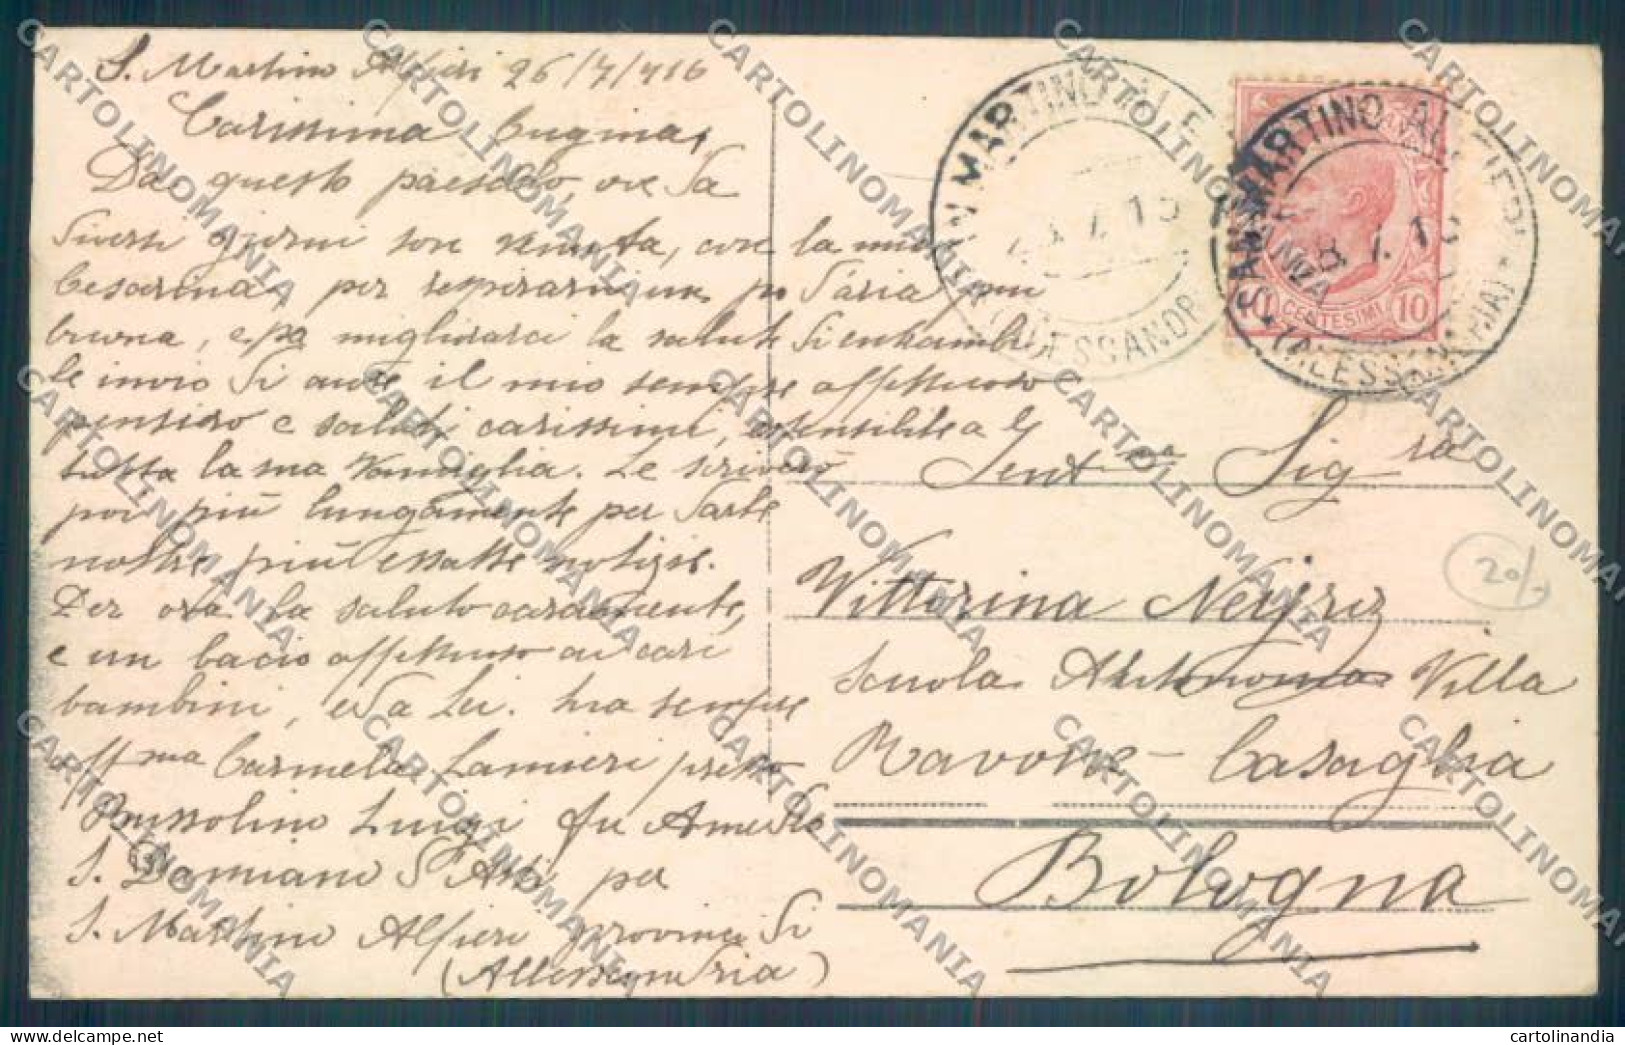 S. Martino Alfieri 26/7/916
Carissima Cugina,
Da questo paesello, ove da
diversi giorni son venuta, con la mia
Cesarina per respirare un po' d'aria più
buona, e po migliorare la salute di entrambi
le invio di cuore il mio sempre affettuoso
pensiero e saluti carissimi, estensibile a
tutta la sua famiglia. Le scriverò
poi più lungamente per darle
nostre più essatte notizie.
Per ora la saluto caramente,
e un bacio affettuoso ai cari
bambini, e da Lei. sua sempre
aff.ma Carmela Lanieri presso
Luigi fu
S. Damiano d'Asti per
S. Martino Alfieri provincia di
(Allessandria)
SAN MARTINO ALFIERI
(ALESSANDRIA)
CENTESIMI 10
Gent.ma Sig.ra
Vittorina
Scuola Villa
Ravone - Casaglia
Bologna
20/
CARTOLINOMANIA
cartolinandia